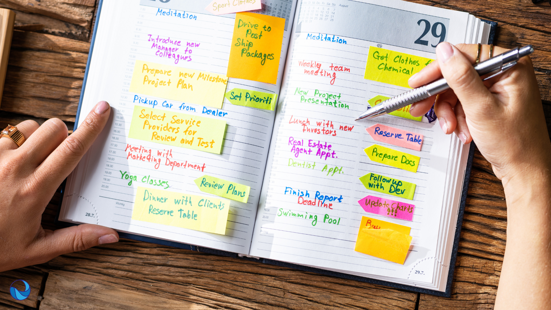 Sport Class
Meditation
Drive to
Post
Ship
Packages
Introduce new
Manager to
Colleagues
Prepare new Milestone
Project Plan
Set Prioriti
Pickup Car from Dealer
Select Service
Providers for
Review and Test
Meeting with
Marketing Department
Yoga Classes
Review Plans
Dinner with Clients
Reserve Table
29
Meditation
Get Clothes f
Chemical
Weekly team
meeting
New Project
Presentation
Lunch with new
investors
Reserve Table
Real Estate
Agent Appt.
Prepare Docs
Dentist Appt.
Followup
with Dev
Finish Report
Deadline
Update Charts
Swimming Pool